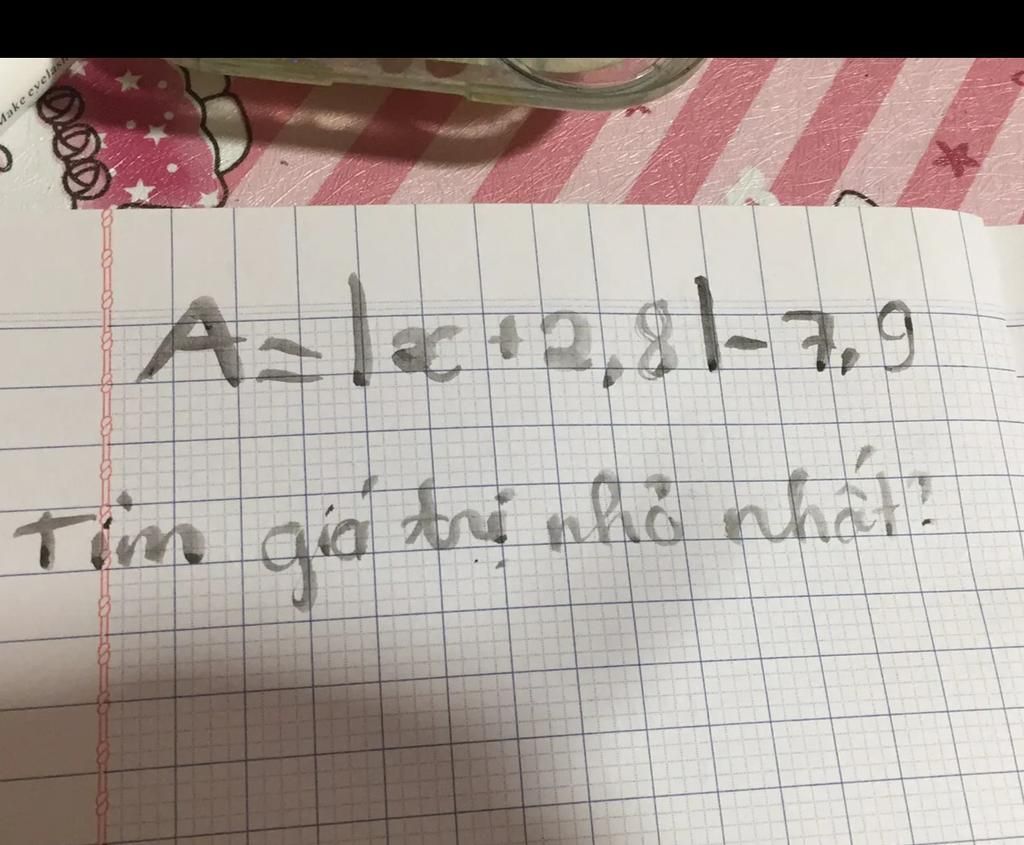 Make eyelash
A = |x + 2,8| - 7,9
Tìm giá trị nhỏ nhất?